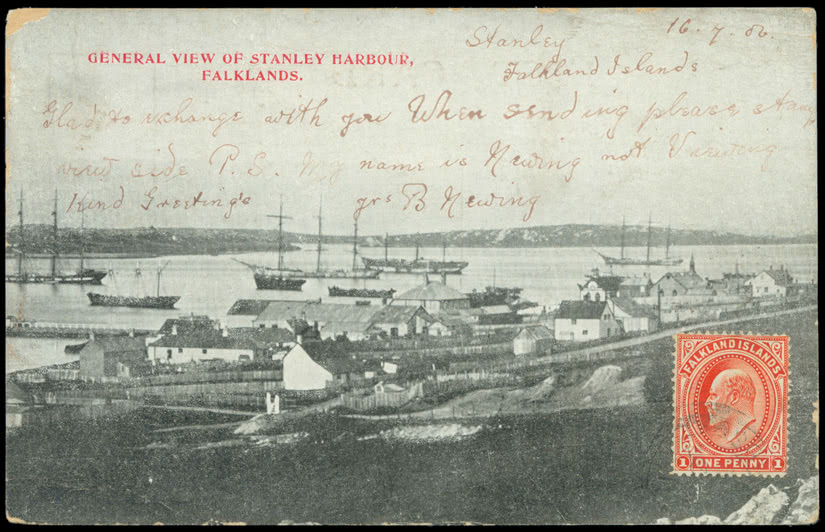 GENERAL VIEW OF STANLEY HARBOUR,
FALKLANDS.
Stanley 16.7.06.
Falkland Islands
Glad to exchange with you When sending please stamp
view side P.S. My name is Newing not
Kind Greeting's yrs B Newing
FALKLAND ISLANDS
1 ONE PENNY 1